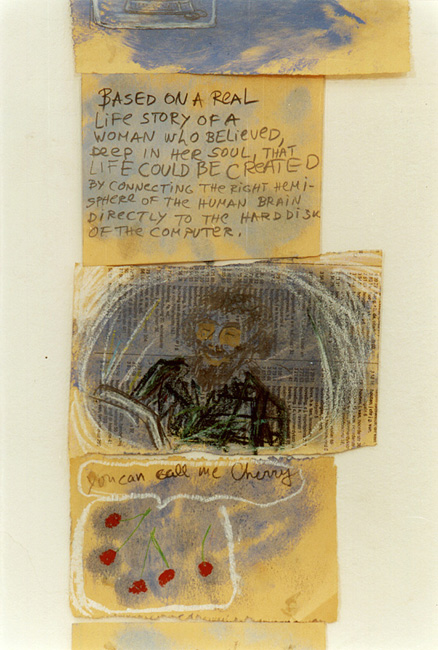 BASED ON A REAL
LIFE STORY OF A
WOMAN WHO BELIEVED,
DEEP IN HER SOUL, THAT
LIFE COULD BE CREATED
BY CONNECTING THE RIGHT HEMI-
SPHERE OF THE HUMAN BRAIN
DIRECTLY TO THE HARD DISK
OF THE COMPUTER.
you can call me Cherry